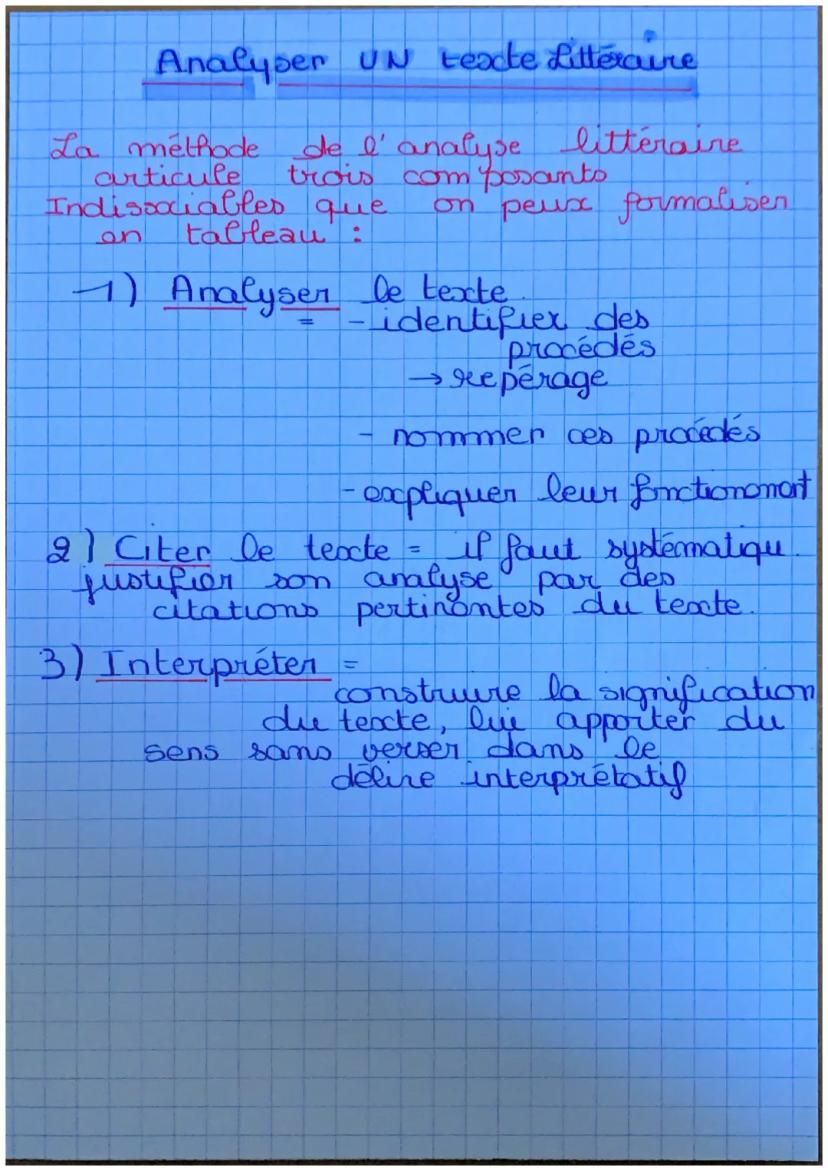 Analyser UN texte littéraire
La méthode de l'analyse littéraire
articule trois composants
Indissociables que on peux formaliser
en tableau :
1) Analyser le texte.
= - identifier des
procédés
→ repérage
- nommer ces procédés
- expliquer leur fonctionomant
2) Citer le texte = il faut systématiqu.
justifier son analyse par des
citations pertinantes du texte.
3) Interpréter =
construire la signification
du texte, lui apporter du
sens sans verser dans le
délire interprétatif